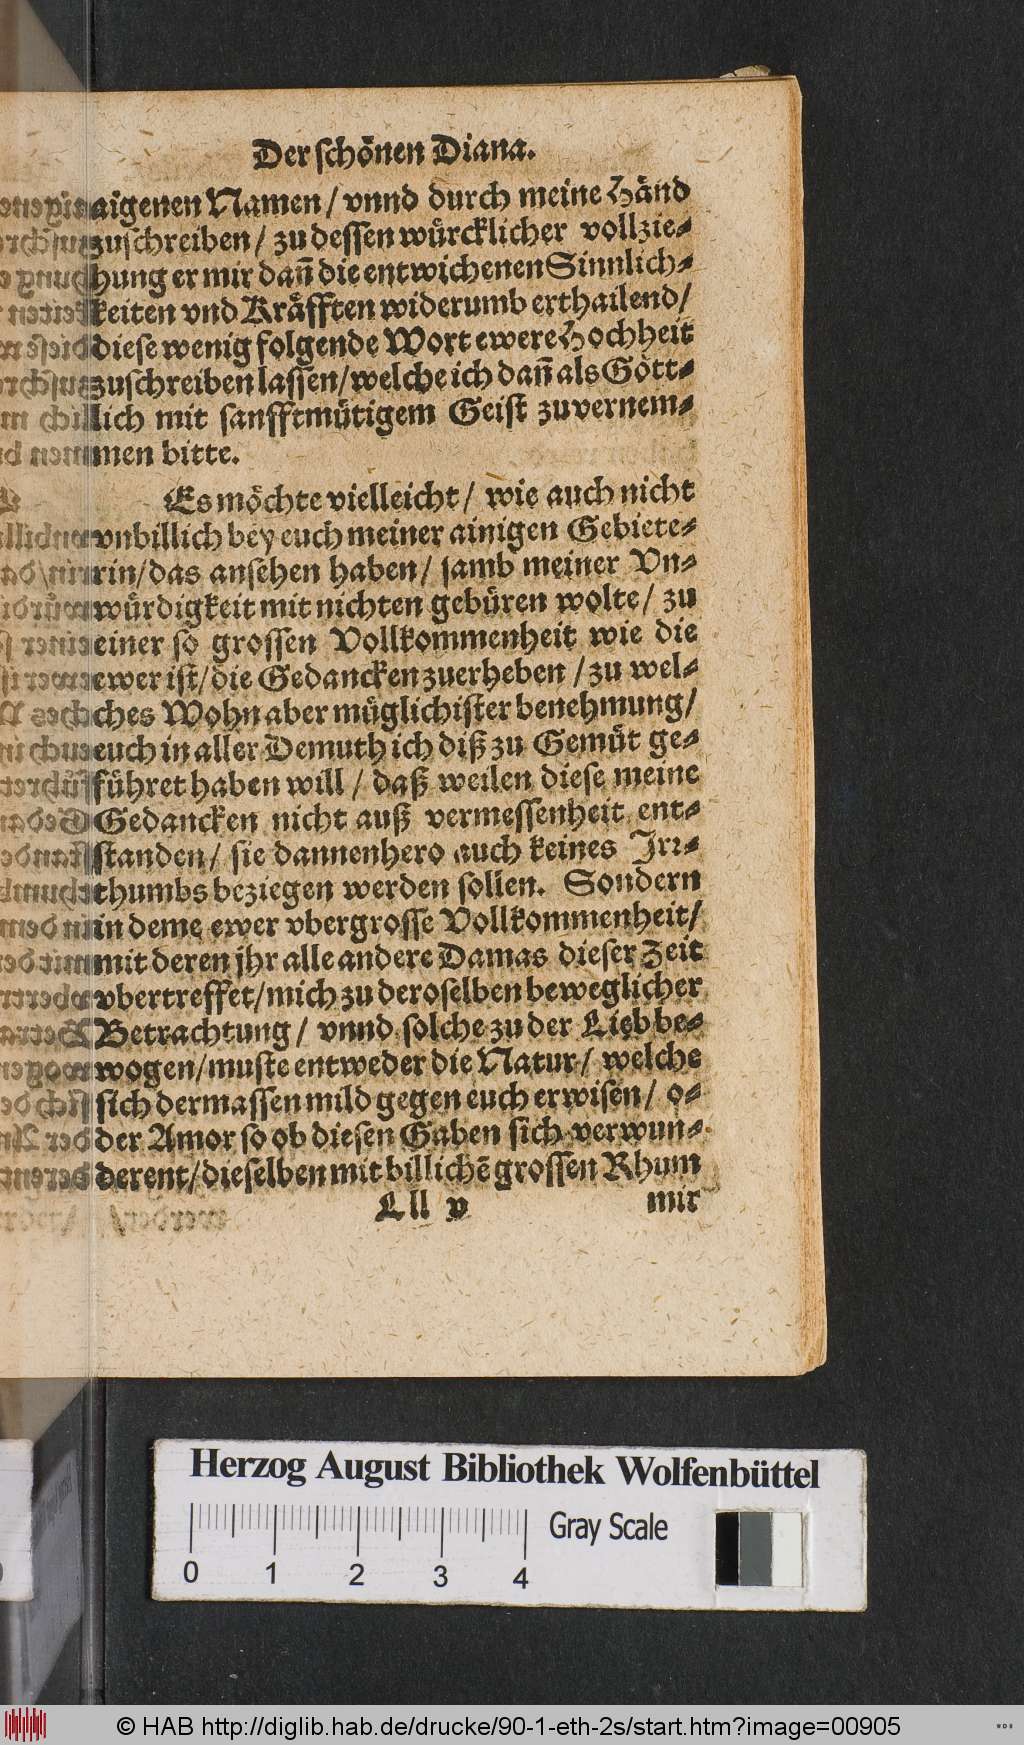 Der schönen Diana.
aigenen Namen / vnnd durch meine Händ
zuschreiben / zu dessen würcklicher vollzie-
hung er mir dañ die entwichenen Sinnlich-
keiten vnd Kräfften widerumb erthailend /
diese wenig folgende Wort ewere Hochheit
zuschreiben lassen / welche ich dañ als Gött-
lich mit sanfftmütigem Geist zuvernem-
men bitte.
Es möchte vielleicht / wie auch nicht
vnbillich bey euch meiner ainigen Gebiete-
rin / das ansehen haben / samb meiner Vn-
würdigkeit mit nichten gebüren wolte / zu
einer so grossen Vollkommenheit wie die
ewer ist / die Gedancken zuerheben / zu wel-
ches Wohn aber müglichister benehmung /
euch in aller Demuth ich diß zu Gemüt ge-
führet haben will / daß weilen diese meine
Gedancken nicht auß vermessenheit ent-
standen / sie dannenhero auch keines Irr-
thumbs beziegen werden sollen. Sondern
in deme ewer vbergrosse Vollkommenheit /
mit deren jhr alle andere Damas dieser Zeit
vbertreffet / mich zu deroselben beweglicher
Betrachtung / vnnd solche zu der Lieb be-
wogen / muste entweder die Natur / welche
sich dermassen mild gegen euch erwisen / o-
der Amor so ob diesen Gaben sich verwun-
derent / dieselben mit billichē grossen Rhum
Lll v mir
Herzog August Bibliothek Wolfenbüttel
Gray Scale
0 1 2 3 4
© HAB http://diglib.hab.de/drucke/90-1-eth-2s/start.htm?image=00905